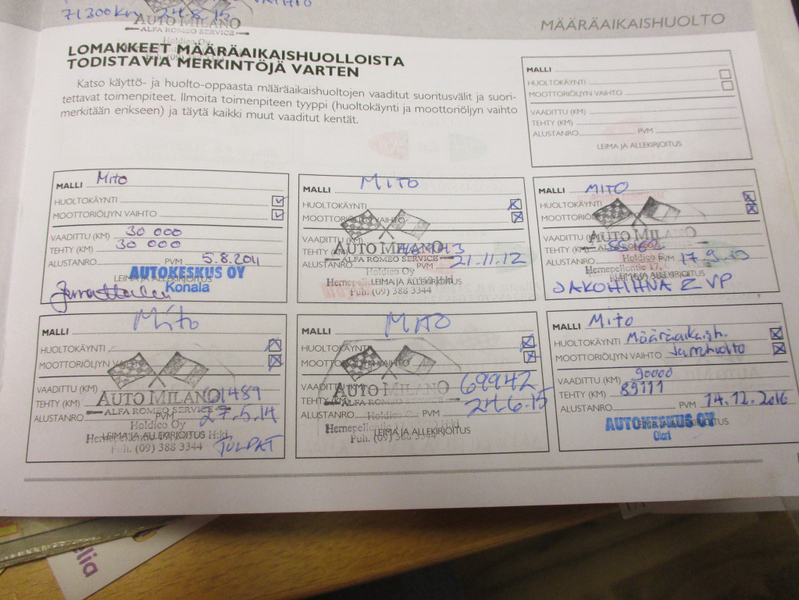 71300km 24.8.15
AUTO MILANO
ALFA ROMEO SERVICE
Holdico Oy
MÄÄRÄAIKAISHUOLTO
LOMAKKEET MÄÄRÄAIKAISHUOLLOISTA
TODISTAVIA MERKINTÖJÄ VARTEN
Katso käyttö- ja huolto-oppaasta määräaikaishuoltojen vaaditut suoritusvälit ja suori-
tettavat toimenpiteet. Ilmoita toimenpiteen tyyppi (huoltokäynti ja moottoriöljyn vaihto
merkitään erikseen) ja täytä kaikki muut vaaditut kentät.
MALLI
HUOLTOKÄYNTI
MOOTTORIÖLJYN VAIHTO
VAADITTU (KM)
TEHTY (KM)
ALUSTANRO PVM
LEIMA JA ALLEKIRJOITUS
MALLI Mito
HUOLTOKÄYNTI
MOOTTORIÖLJYN VAIHTO
VAADITTU (KM) 30 000
TEHTY (KM) 30 000
ALUSTANRO PVM 5.8.2011
LEIMA JA ALLEKIRJOITUS
AUTOKESKUS OY
Konala
MALLI MITO
HUOLTOKÄYNTI
MOOTTORIÖLJYN VAIHTO
VAADITTU (KM)
AUTO MILANO
TEHTY (KM)
ALFA ROMEO SERVICE
ALUSTANRO PVM 21.11.12
Holdico Oy
LEIMA JA ALLEKIRJOITUS
Puh. (09) 388 3344
MALLI MITO
HUOLTOKÄYNTI
VAADITTU (KM)
AUTO MILANO
TEHTY (KM)
ALUSTANRO PVM
Holdico
LEIMA JA ALLEKIRJOITUS
JAKOHIHNA & VP
MALLI Mito
HUOLTOKÄYNTI
MOOTTORIÖLJYN VAIHTO
VAADITTU (KM)
AUTO MILANO
TEHTY (KM) 61489
ALFA ROMEO SERVICE
ALUSTANRO PVM 27.5.14
Holdico Oy
LEIMA JA ALLEKIRJOITUS
Puh. (09) 388 3344
TULPAT
MALLI MITO
HUOLTOKÄYNTI
MOOTTORIÖLJYN VAIHTO
VAADITTU (KM)
AUTO MILANO
TEHTY (KM) 69942
ALFA ROMEO SERVICE
ALUSTANRO PVM 24.6.15
Holdico Oy
LEIMA JA ALLEKIRJOITUS
Puh. (09) 388 3344
MALLI Mito
HUOLTOKÄYNTI Määräaikaish.
MOOTTORIÖLJYN VAIHTO Jarruhuolto
VAADITTU (KM) 90000
TEHTY (KM) 89111
ALUSTANRO PVM 14.12.2016
LEIMA JA ALLEKIRJOITUS
AUTOKESKUS OY
Olari